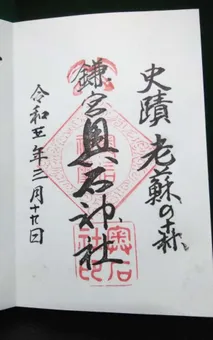 史蹟 老蘇の森
鎌宮 奥石神社
令和五年三月十九日
奥石
社印